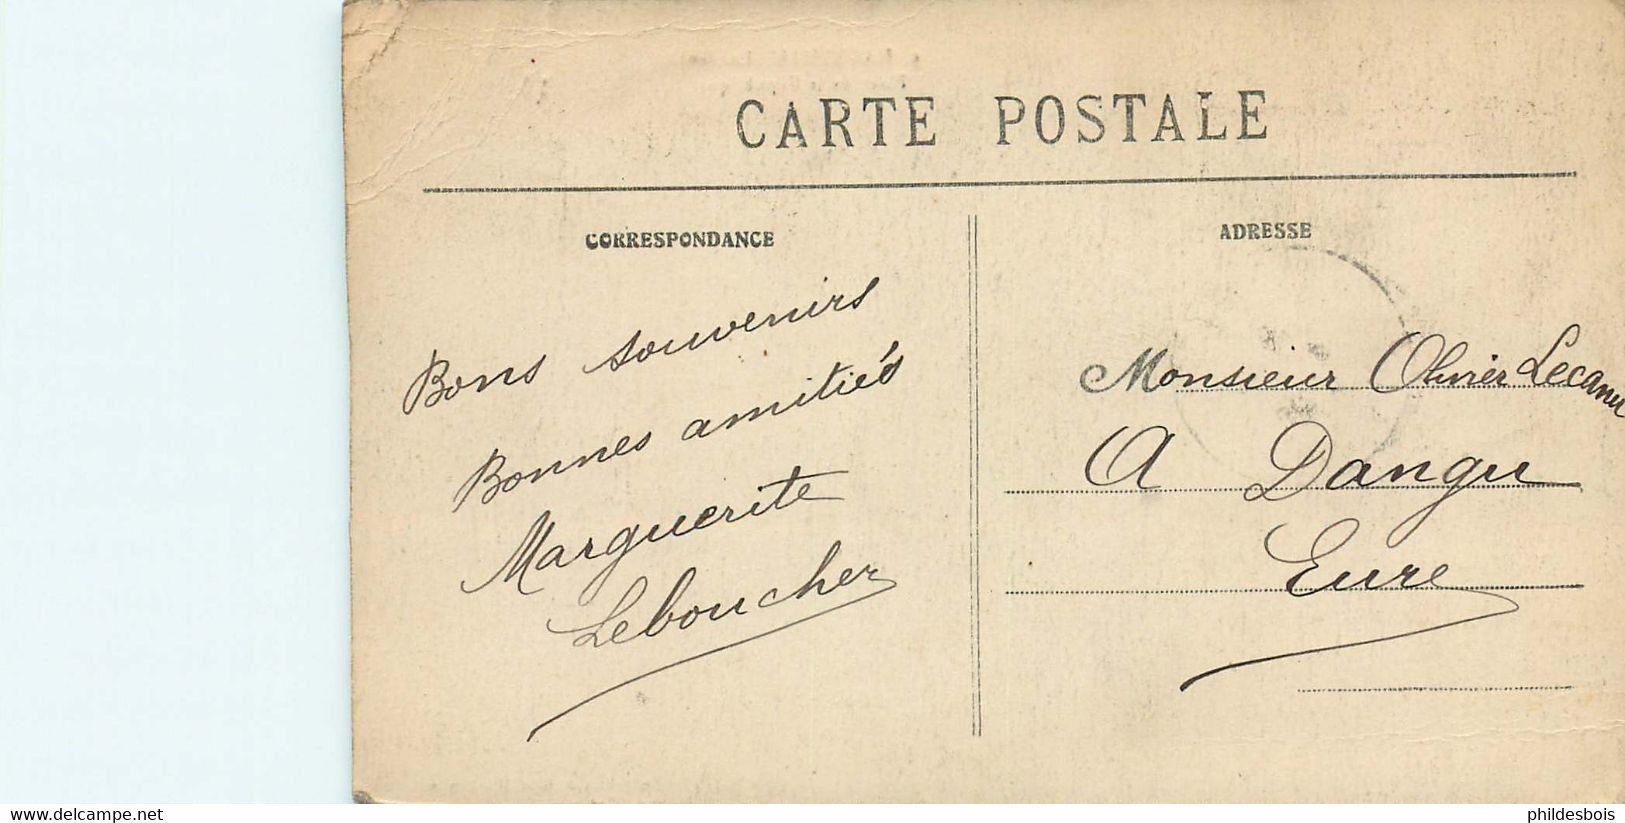 CARTE POSTALE
CORRESPONDANCE
ADRESSE
Bons souvenirs
Bonnes amitiés
Marguerite
Leboucher
Monsieur Olivier Lecanu
A Dangu
Eure
www.delcampe.net
phildesbois